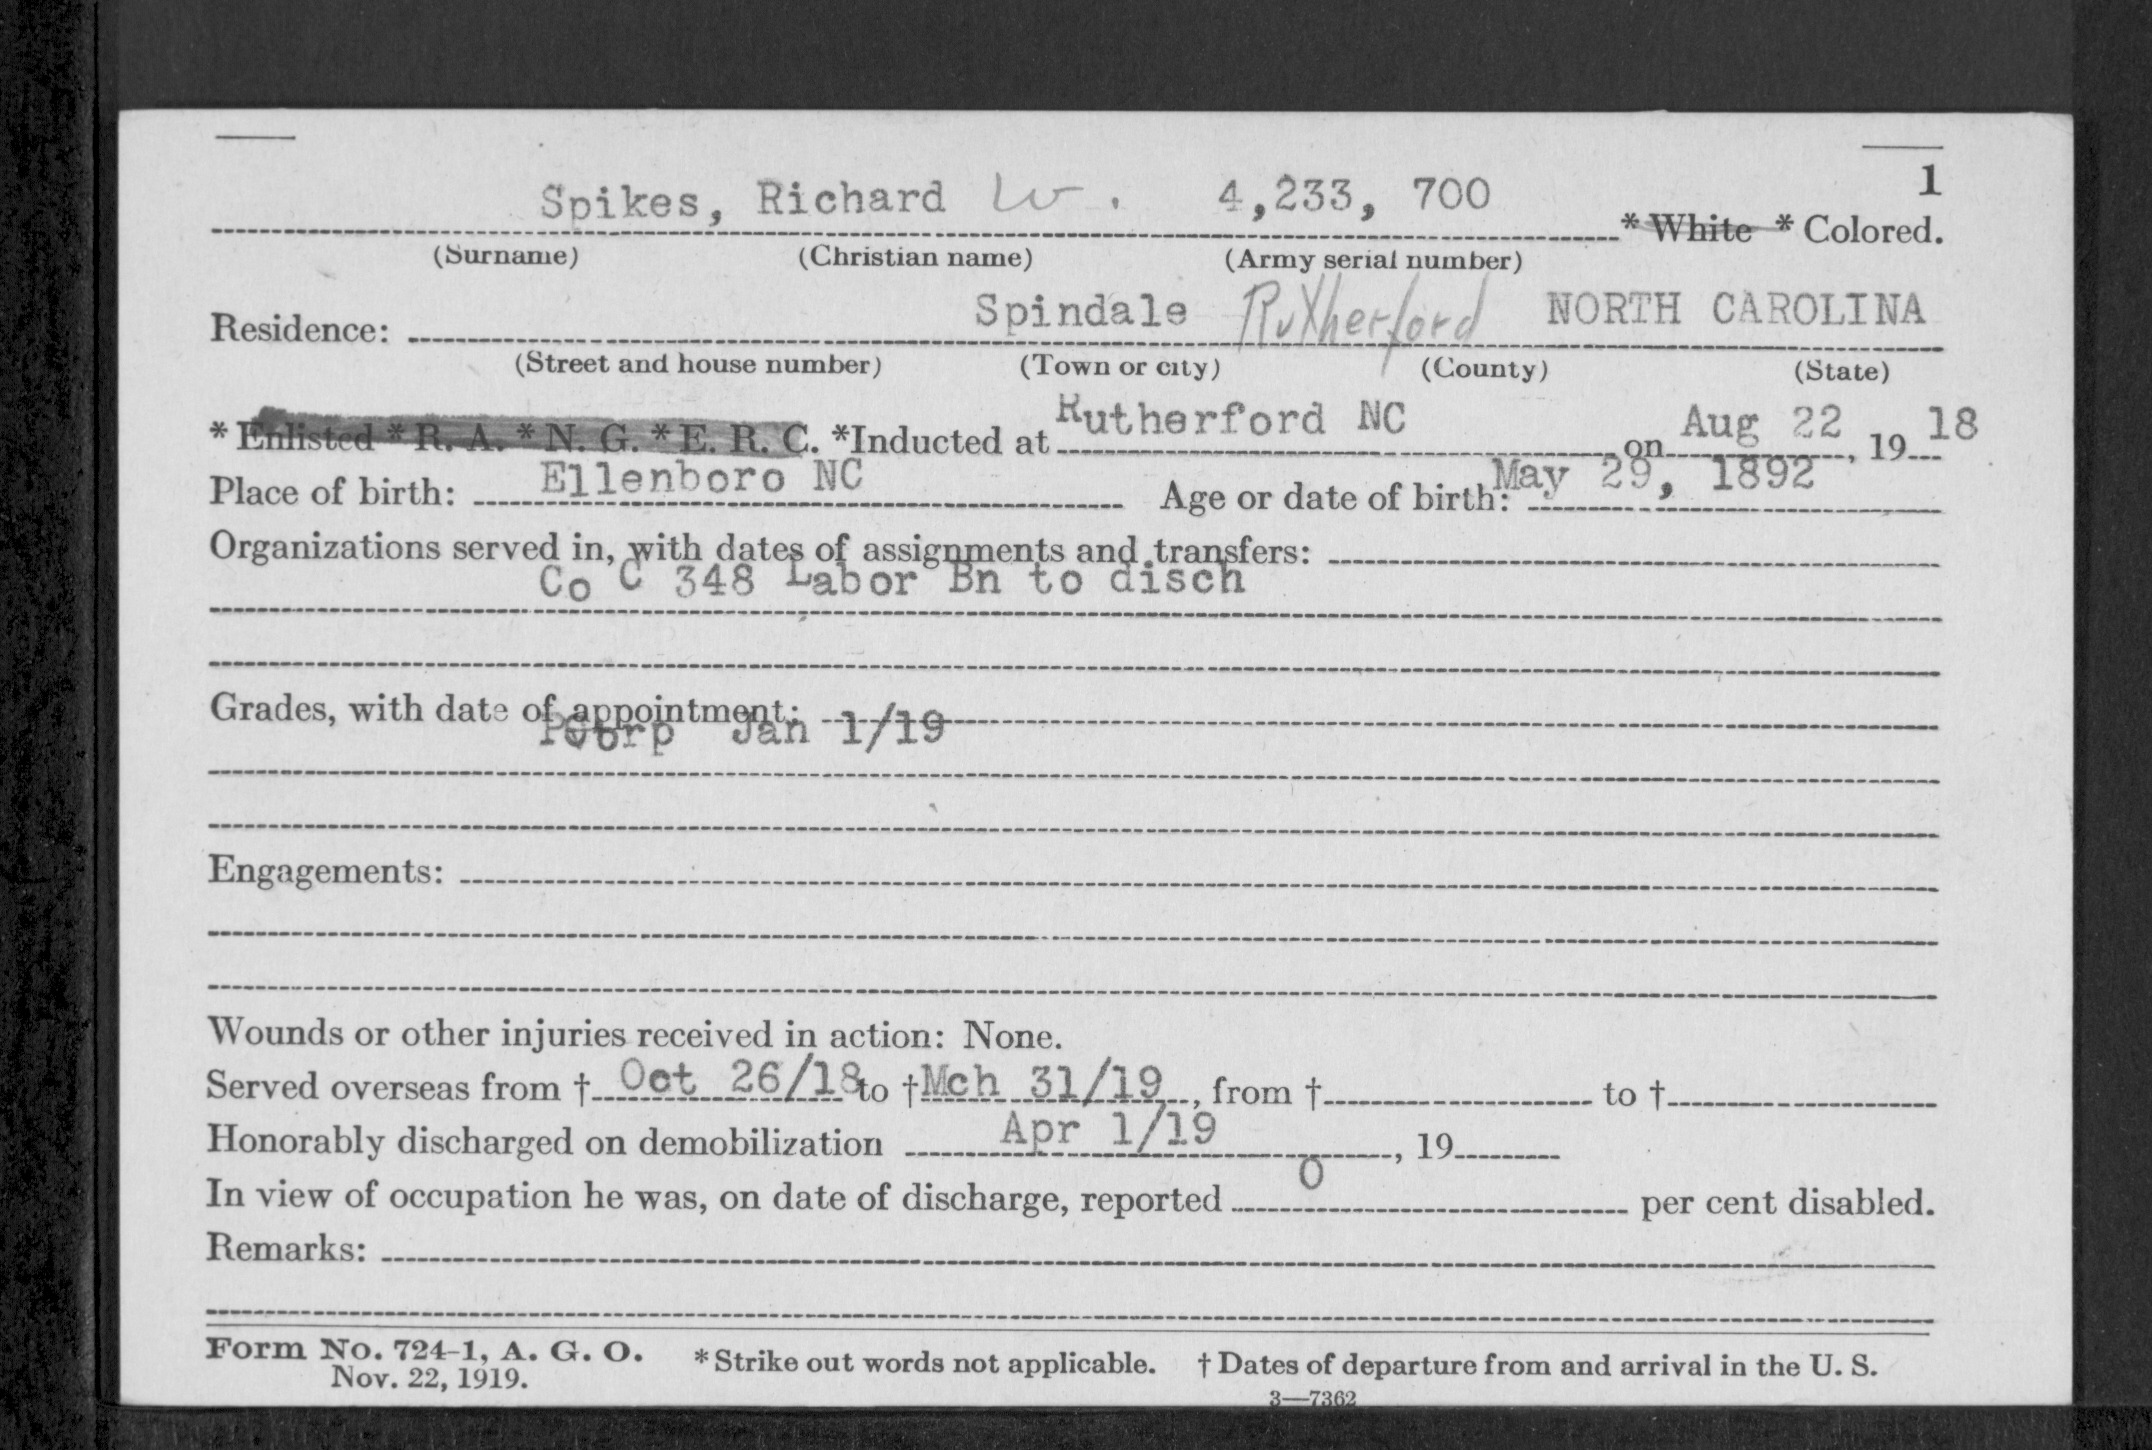 1
Spikes, Richard W. 4,233, 700 * White * Colored.
(Surname) (Christian name) (Army serial number)
Residence: Spindale Rutherford NORTH CAROLINA
(Street and house number) (Town or city) (County) (State)
* Enlisted * R. A. * N. G. * E. R. C. *Inducted at Rutherford NC on Aug 22, 19 18
Place of birth: Ellenboro NC Age or date of birth: May 29, 1892
Organizations served in, with dates of assignments and transfers:
Co C 348 Labor Bn to disch
Grades, with date of appointment:
Corp Jan 1/19
Engagements:
Wounds or other injuries received in action: None.
Served overseas from † Oct 26/18 to † Mch 31/19, from † to †
Honorably discharged on demobilization Apr 1/19, 19
In view of occupation he was, on date of discharge, reported 0 per cent disabled.
Remarks:
Form No. 724-1, A. G. O. * Strike out words not applicable. † Dates of departure from and arrival in the U. S.
Nov. 22, 1919.
3—7362